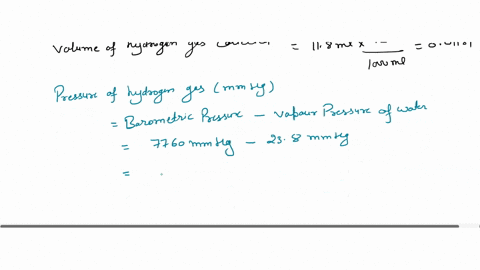 Volume of hydrogen gas = 11.8 ml ×
1000 ml
Pressure of hydrogen gas (mmHg)
= Barometric Pressure - vapour Pressure of water
= 7760 mmHg - 23.8 mmHg
=